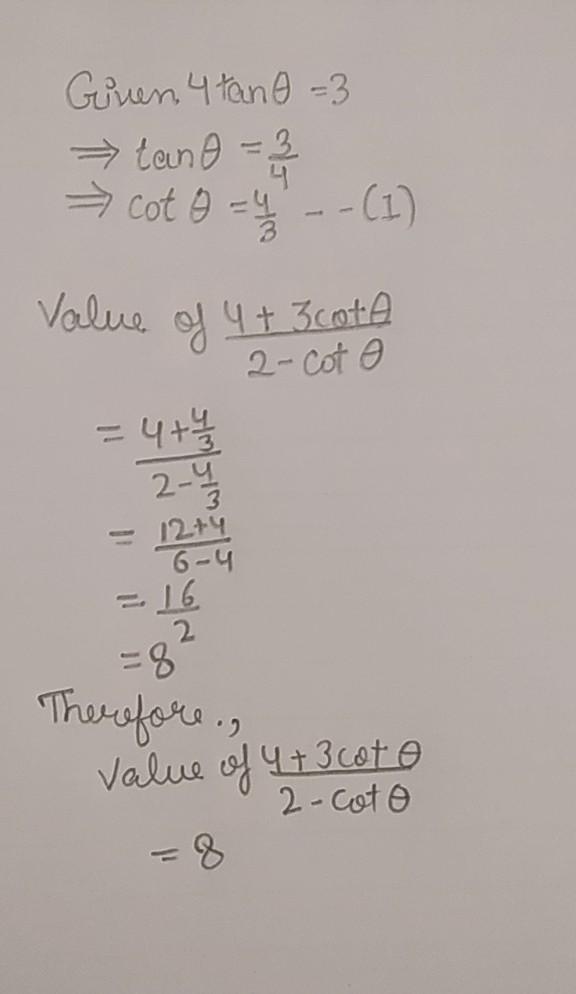 Given, 4tanθ = 3
⇒ tanθ = 3/4
⇒ cot θ = 4/3 - - (1)
Value of (4 + 3cotθ)/(2 - cot θ)
= (4 + 4/3)/(2 - 4/3)
= (12+4)/(6-4)
= 16/2
= 8
Therefore.,
Value of (4 + 3cot θ)/(2 - cot θ)
= 8